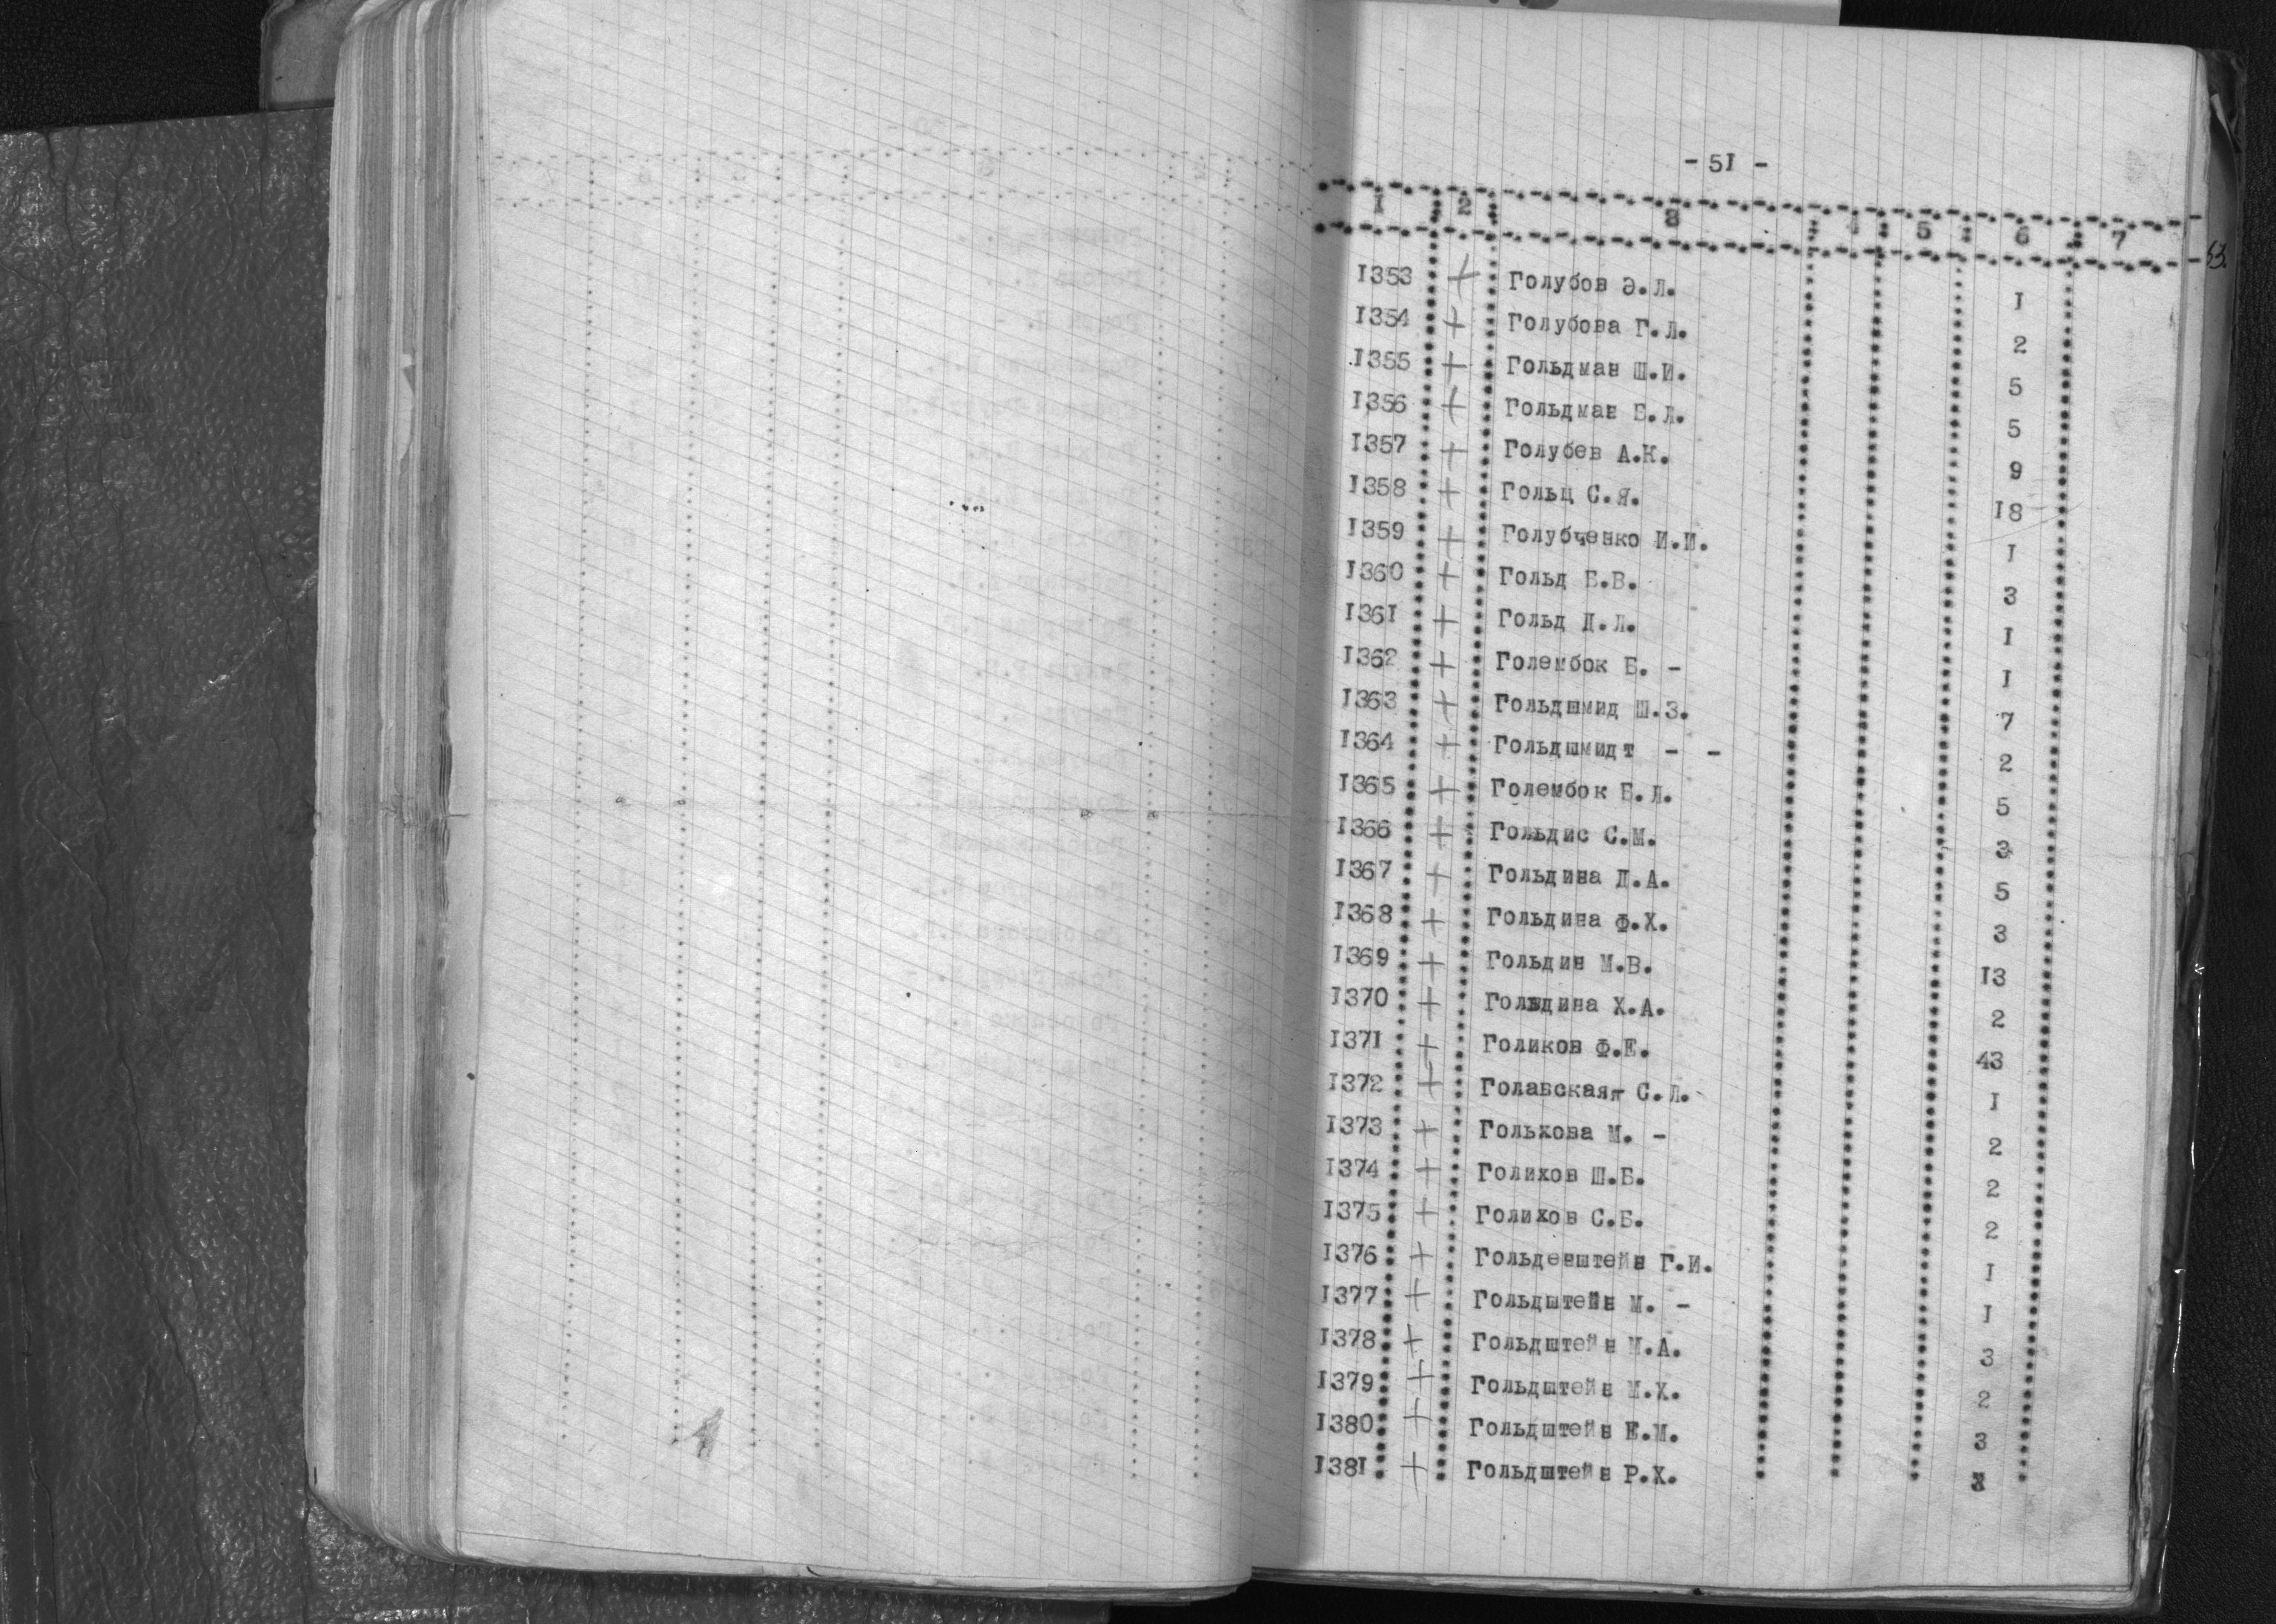 - 5I -
I 2 3 4 5 6 7
53.
I353 + Голубов Э.Л. I
I354 + Голубова Г.Л. 2
I355 + Гольдман Ш.И. 5
I356 + Гольдман Б.Л. 5
I357 + Голубев А.К. 9
I358 + Гольц С.Я. I8
I359 + Голубченко И.И. I
I360 + Гольд Б.В. 3
I36I + Гольд Д.Л. I
I362 + Голембок Б. - I
I363 + Гольдшмид Ш.З. 7
I364 + Гольдшмидт - - 2
I365 + Голембок Б.Л. 5
I366 + Гольдис С.М. 3
I367 + Гольдина Д.А. 5
I368 + Гольдина Ф.Х. 3
I369 + Гольдин М.В. I3
I370 + Гольдина Х.А. 2
I37I + Голиков Ф.Е. 43
I372 + Голавская- С.Л. I
I373 + Голькова М. - 2
I374 + Голихов Ш.Б. 2
I375 + Голихов С.Б. 2
I376 + Гольденштейн Г.И. I
I377 + Гольдштейн М. - I
I378 + Гольдштейн М.А. 3
I379 + Гольдштейн М.Х. 2
I380 + Гольдштейн Е.М. 3
I38I + Гольдштейн Р.Х.